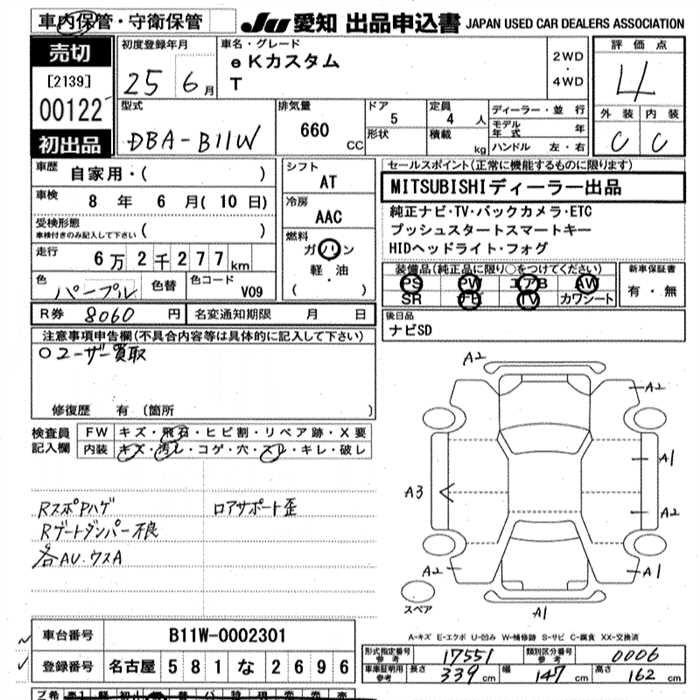 車内保管・守衛保管
JU 愛知 出品申込書 JAPAN USED CAR DEALERS ASSOCIATION
売切
[2139]
00122
初出品
初度登録年月
25 6月
車名・グレード
eKカスタム
T
2WD
・
4WD
評価点
4
外装 内装
C C
型式
DBA-B11W
排気量
660 CC
ドア 5
形状
定員 4 人
積載 kg
ディーラー・並行
モデル年式 年
ハンドル 左・右
車歴
自家用・( )
車検
8 年 6 月( 10 日)
受検形態
車検付きのみ記入して下さい ( )
走行
6万2千277km
色 パープル 色替 色コード V09
シフト
AT
冷房
AAC
燃料
ガソリン
軽・油
( )
セールスポイント(正常に機能するものに限ります)
MITSUBISHIディーラー出品
純正ナビ・TV・バックカメラ・ETC
プッシュスタートスマートキー
HIDヘッドライト・フォグ
装備品(純正品に限り○をつけてください)
PS PW エアB AW
SR ナビ TV カワシート
新車保証書
有・無
R券 8060 円 名変通知期限 月 日
後日品
ナビSD
注意事項申告欄(不具合内容等は具体的に記入して下さい)
○ユーザー買取
修復歴 有 (箇所 )
検査員
記入欄
FW キズ・飛石・ヒビ割・リペア跡・X要
内装 キズ・汚レ・コゲ・穴・スレ・キレ・破レ
RスポPハゲ ロアサポート歪
Rゲートダンパー不良
各AU.ウスA
A2
A2
A1
A3
A2
A2
A1
A1
スペア
A-キズ E-エクボ U-凹み W-補修跡 S-サビ C-腐食 XX-交換済
車台番号 B11W-0002301
登録番号 名古屋 581 な 2696
形式指定番号 参考 17551 類別区分番号 参考 0006
車庫証明用 参考 長さ 339 cm 幅 147 cm 高さ 162 cm